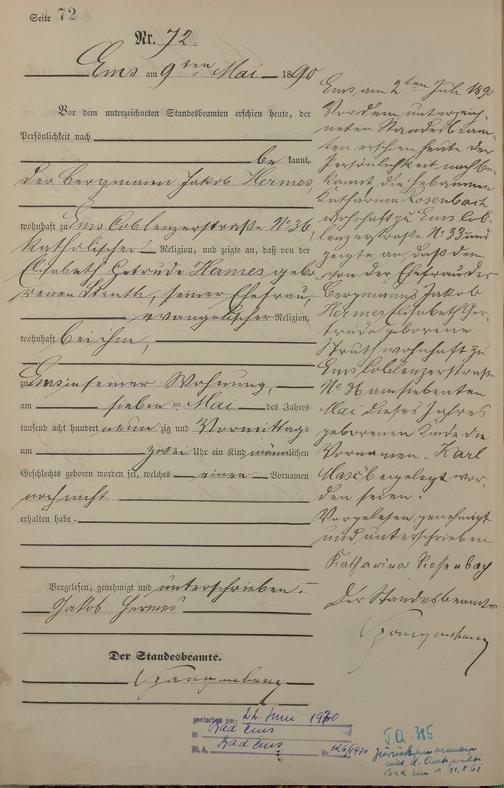 Seite 72
Nr. 72.
Ems am 9ten Mai 1890
Vor dem unterzeichneten Standesbeamten erschien heute, der
Persönlichkeit nach
bekannt,
der Bergmann Jakob Hermes,
wohnhaft zu Ems Coblenzerstraße No 36,
katholischer Religion, und zeigte an, daß von der
Elisabeth Getrude Hermes gebo-
renen Struth, seiner Ehefrau,
evangelischer Religion,
wohnhaft bei ihm,
zu Ems in seiner Wohnung,
am sieben ten Mai des Jahres
tausend acht hundert neunzig und Vormittags
um zwei Uhr ein Kind männlichen
Geschlechts geboren worden sei, welches einen Vornamen
noch nicht
erhalten habe.
Vorgelesen, genehmigt und unterschrieben.
Jakob Hermes
Der Standesbeamte.
Ems am 2ten Juli 1890
Vor dem unterzeich-
neten Standesbeam-
ten erschien heute der
Persönlichkeit nach be-
kannt, die Hebamme
Katharina Rosenbach
wohnhaft zu Ems Cob-
lenzerstraße No 33 und
zeigte an, daß dem
von der Ehefrau des
Bergmanns Jakob
Hermes Elisabeth Ger-
trude geborene
Struth wohnhaft zu
Ems Coblenzerstraße
No 36 am siebenten
Mai dieses Jahres
geborenen Kinde die
Vornamen "Karl
beigelegt wor-
den seien.
Vorgelesen genehmigt
und unterschrieben
Katharina Rosenbach
Der Standesbeamte
gestorben am: 22. Juni 1970
in Bad Ems
St. A. Bad Ems Nr. 126/1970